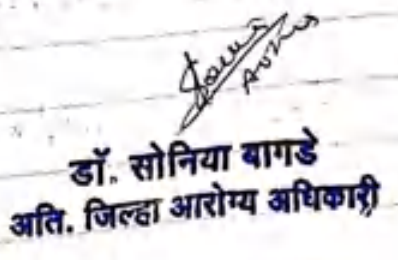 डॉ. सोनिया बागडे
अति. जिल्हा आरोग्य अधिकारी